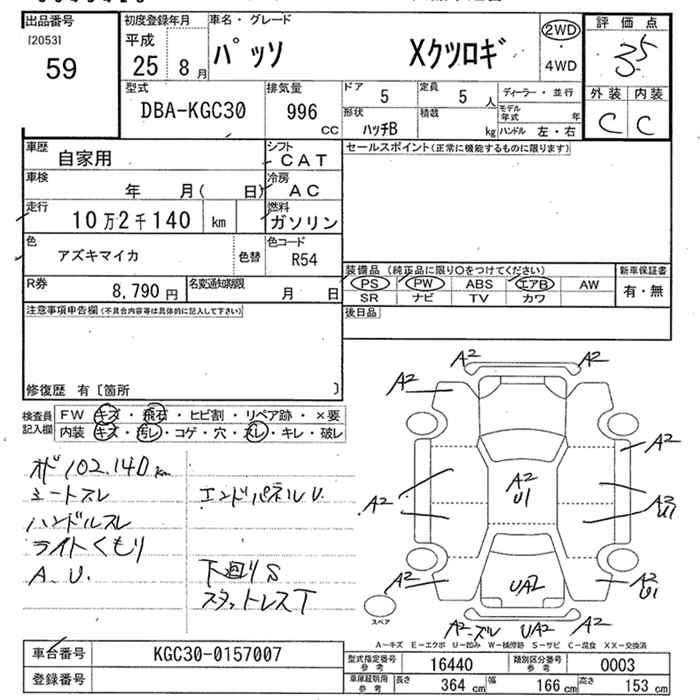 出品番号
[2053]
59
初度登録年月
平成
25 8 月
車名・グレード
パッソ Xクツロギ
2WD
・
4WD
評価点
3.5
外装 内装
C C
型式
DBA-KGC30
排気量
996 cc
ドア 5
定員 5 人
形状 ハッチB
積載 kg
ディーラー・並行
モデル年式 年
ハンドル 左・右
車歴 自家用
シフト CAT
車検 年 月( 日)
冷房 AC
走行 10万2千140 km
燃料 ガソリン
色 アズキマイカ 色替
色コード R54
R券 8,790 円
名変通知期限 月 日
セールスポイント(正常に機能するものに限ります)
装備品 (純正品に限り○をつけてください)
PS PW ABS エアB AW
SR ナビ TV カワ
新車保証書
有・無
後日品
注意事項申告欄(不具合内容等は具体的に記入して下さい)
修復歴 有〔箇所 〕
検査員記入欄
FW キズ・飛石・ヒビ割・リペア跡・×要
内装 キズ・汚レ・コゲ・穴・スレ・キレ・破レ
オド102,140km
シートスレ
ハンドルスレ
ライトくもり
A.U.
エンドパネルU.
下廻りS
スタットレスT
A2 A2
A2
A2
A2 A2 U1 A2 U1
A2
A2 UA2 A2 U1
スペア
A2-ズレ UA2 A2
A-キズ E-エクボ U-凹み W-補修跡 S-サビ C-腐食 XX-交換済
車台番号 KGC30-0157007
登録番号
型式指定番号 参考 16440
類別区分番号 参考 0003
車庫証明用 参考 長さ 364 cm 幅 166 cm 高さ 153 cm